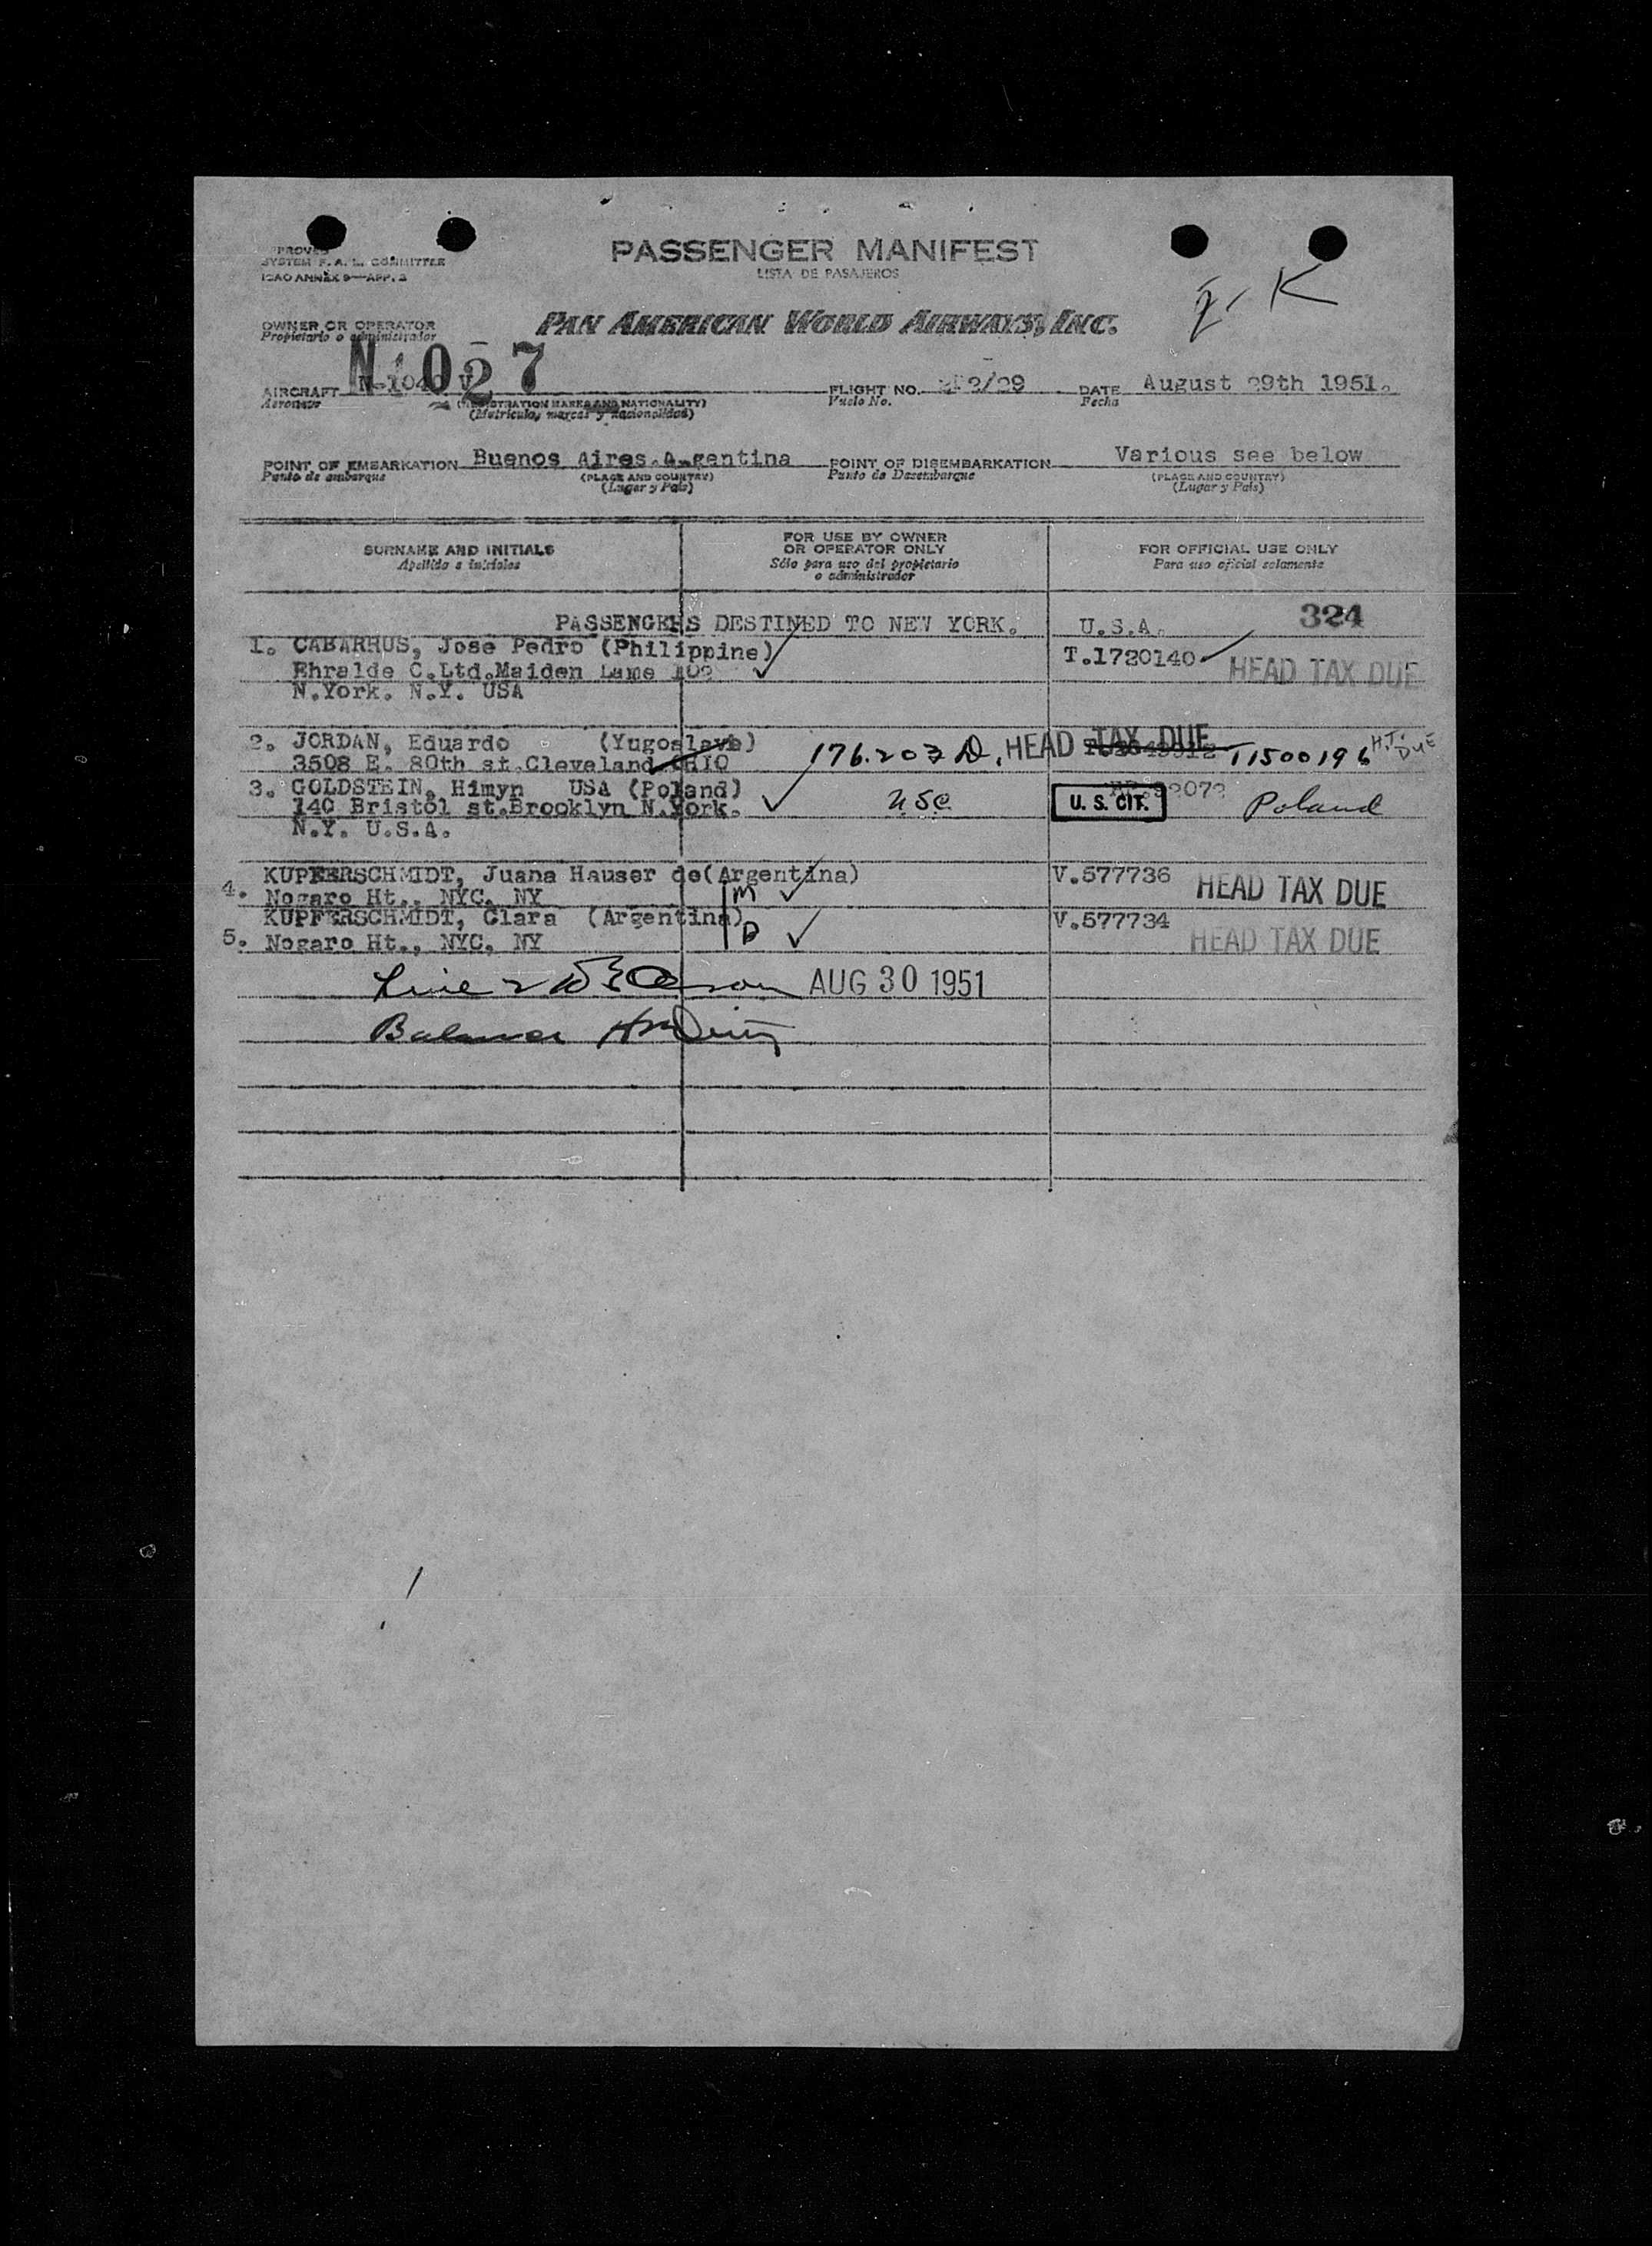 PASSENGER MANIFEST
LISTA DE PASAJEROS
SYSTEM F. A. L. COMMITTEE
ICAO ANNEX 9—APP. 3
OWNER OR OPERATOR
Propietario o administrador
PAN AMERICAN WORLD AIRWAYS, INC.
N1027
AIRCRAFT
Aeronave
(REGISTRATION MARKS AND NATIONALITY)
(Matrícula, marcas y nacionalidad)
FLIGHT NO.
Vuelo No.
DATE August 29th 1951.
Fecha
POINT OF EMBARKATION Buenos Aires. Argentina
Punto de embarque
(PLACE AND COUNTRY)
(Lugar y País)
POINT OF DISEMBARKATION Various see below
Punto de Desembarque
(PLACE AND COUNTRY)
(Lugar y País)
SURNAME AND INITIALS
Apellido e iniciales
FOR USE BY OWNER
OR OPERATOR ONLY
Sólo para uso del propietario
o administrador
FOR OFFICIAL USE ONLY
Para uso oficial solamente
PASSENGERS DESTINED TO NEW YORK. U.S.A. 324
1. CABARHUS, Jose Pedro (Philippine) T.1720140 HEAD TAX DUE
Ehralde C.Ltd.Maiden Lame 102
N.York. N.Y. USA
2. JORDAN, Eduardo (Yugoslave) 176.203 D. HEAD TAX DUE T1500196 H.T. DUE
3508 E. 80th st.Cleveland OHIO
3. GOLDSTEIN, Himyn USA (Poland) USC U. S. CIT. Poland
140 Bristol st.Brooklyn N.York.
N.Y. U.S.A.
KUPFERSCHMIDT, Juana Hauser de(Argentina) V.577736 HEAD TAX DUE
4. Nogaro Ht., NYC, NY M
KUPFERSCHMIDT, Clara (Argentina) V.577734
5. Nogaro Ht., NYC, NY D HEAD TAX DUE
Line 2 AUG 30 1951
Balance